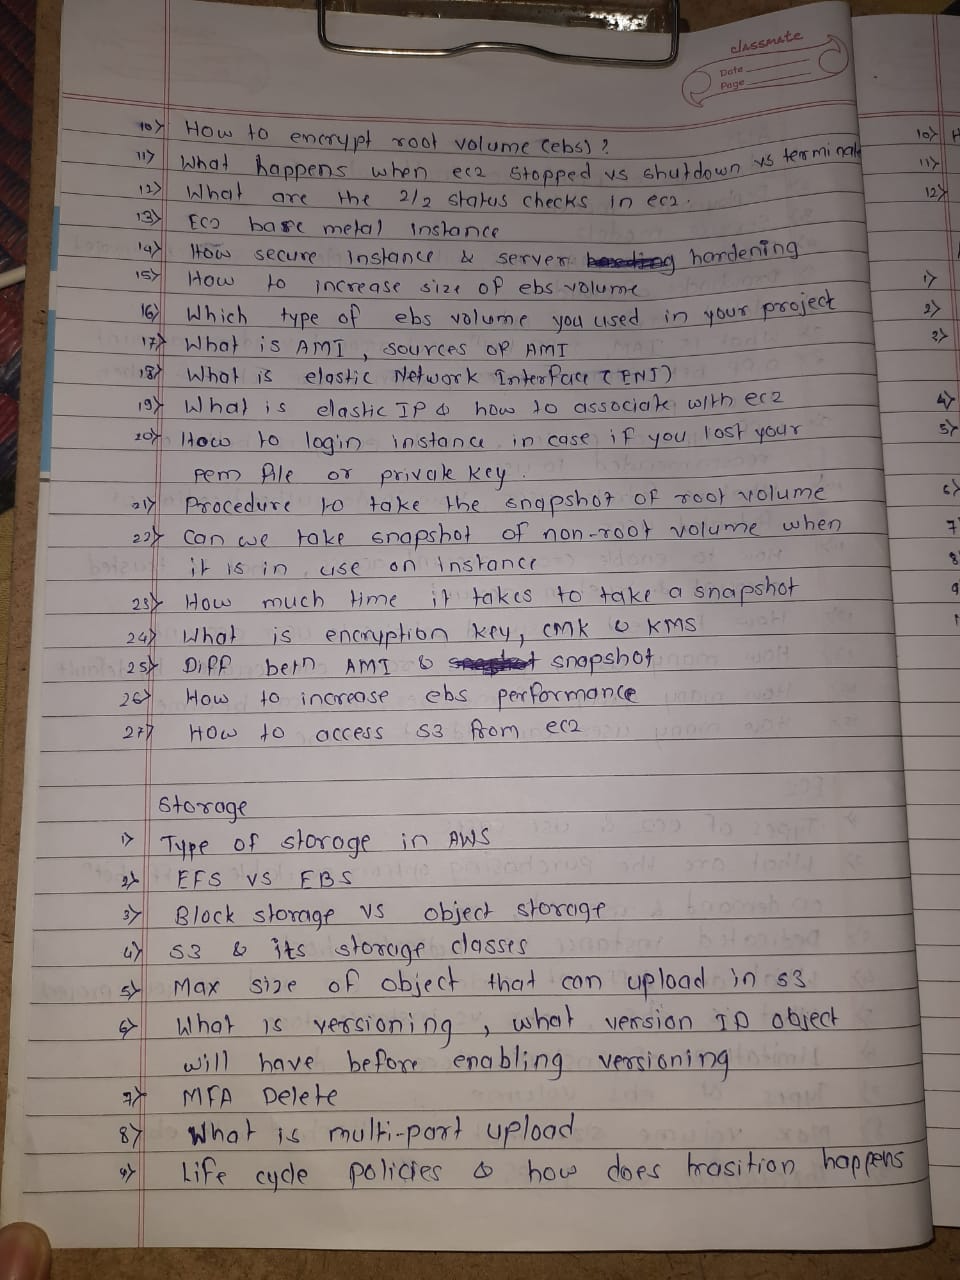 classmate
Date
Page
10) How to encrypt root volume (ebs) ?
11) What happens when ec2 stopped vs shutdown vs terminate
12) What are the 2/2 status checks in ec2.
13) EC2 bare metal instance
14) How secure instance & server hardening
15) How to increase size of ebs volume
16) Which type of ebs volume you used in your project
17) What is AMI , sources of AMI
18) What is elastic Network Interface (ENI)
19) What is elastic IP & how to associate with ec2
20) How to login instance in case if you lost your
pem file or private key.
21) Procedure to take the snapshot of root volume
22) can we take snapshot of non-root volume when
it is in use on instance
23) How much time it takes to take a snapshot
24) What is encryption key, CMK & KMS
25) Diff betn AMI & snapshot
26) How to increase ebs performance
27) How to access S3 from ec2
Storage
1) Type of storage in AWS
2) EFS vs EBS
3) Block storage vs object storage
4) S3 & its storage classes
5) Max size of object that can upload in s3
6) What is versioning , what version ID object
will have before enabling versioning
7) MFA Delete
8) What is multi-part upload
9) Life cycle policies & how does trasition happens
10) H
11)
12)
1)
2)
3)
4)
5)
6)
7
8
9